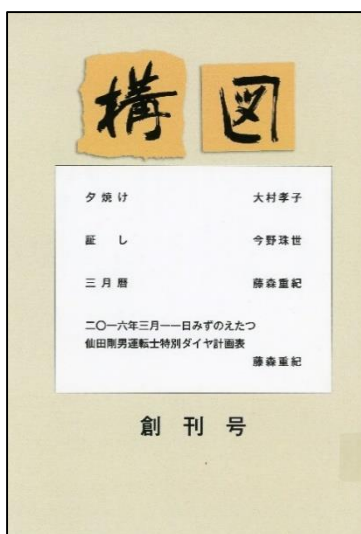 構図
夕焼け 大村孝子
証し 今野珠世
三月暦 藤森重紀
二〇一六年三月一一日みずのえたつ
仙田剛男運転士特別ダイヤ計画表
藤森重紀
創刊号